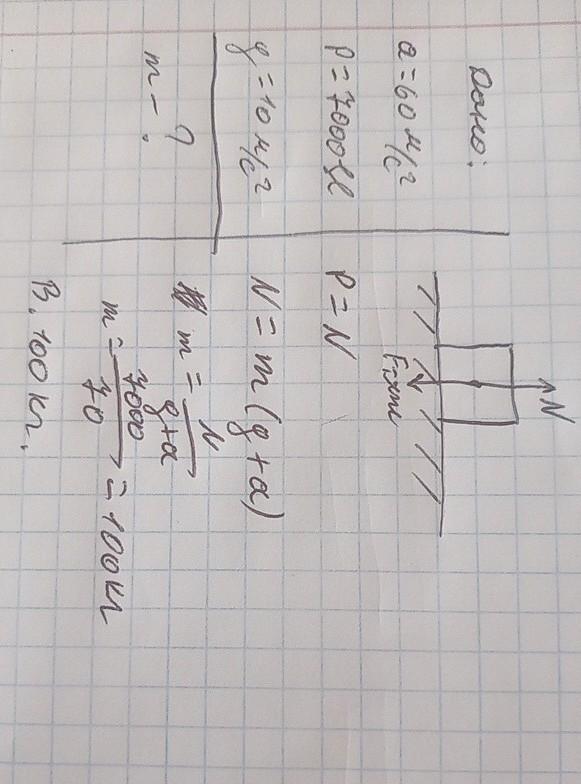 Дано:
a = 60 м/с²
P = 7000 H
g = 10 м/с²
m - ?
N
Fтяж
P = N
N = m(g+a)
m = N/g+a
m = 7000/70 = 100 кг
В. 100 кг.